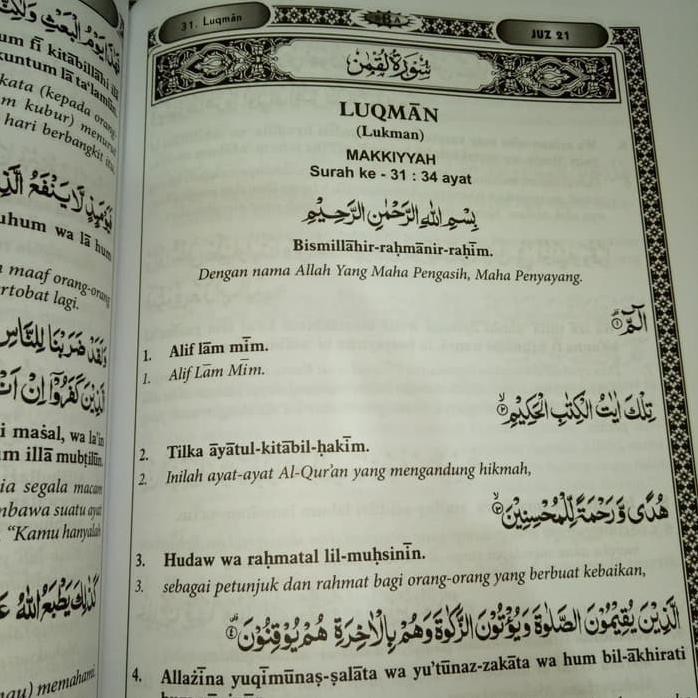 31. Luqmān
JUZ 21
سُوْرَةُ لُقْمٰن
LUQMĀN
(Lukman)
MAKKIYYAH
Surah ke - 31 : 34 ayat
بِسْمِ اللّٰهِ الرَّحْمٰنِ الرَّحِيْمِ
Bismillāhir-raḥmānir-raḥīm.
Dengan nama Allah Yang Maha Pengasih, Maha Penyayang.
الۤمّۤ ۚ ١
1. Alif lām mīm.
1. Alif Lām Mīm.
تِلْكَ اٰيٰتُ الْكِتٰبِ الْحَكِيْمِۙ ٢
2. Tilka āyātul-kitābil-ḥakīm.
2. Inilah ayat-ayat Al-Qur'an yang mengandung hikmah,
هُدًى وَّرَحْمَةً لِّلْمُحْسِنِيْنَۙ ٣
3. Hudaw wa raḥmatal lil-muḥsinīn.
3. sebagai petunjuk dan rahmat bagi orang-orang yang berbuat kebaikan,
الَّذِيْنَ يُقِيْمُوْنَ الصَّلٰوةَ وَيُؤْتُوْنَ الزَّكٰوةَ وَهُمْ بِالْاٰخِرَةِ هُمْ يُوْقِنُوْنَۗ ٤
4. Allażīna yuqīmūnaṣ-ṣalāta wa yu'tūnaz-zakāta wa hum bil-ākhirati
فَهٰذَا يَوْمُ الْبَعْثِ وَلٰكِنَّ
um fī kitābillāhi ilā
kuntum lā ta'lamūn.
kata (kepada orang-
m kubur) menurut
hari berbangkit itu
فَيَوْمَىِٕذٍ لَّا يَنْفَعُ الَّذِ
uhum wa lā hum
maaf orang-orang
ertobat lagi.
وَلَقَدْ ضَرَبْنَا لِلنَّاسِ
الَّذِيْنَ كَفَرُوْٓا اِنْ اَنْ
i maṡal, wa la'in
m illā mubṭilūn.
ia segala macam
mbawa suatu ayat
"Kamu hanyalah
كَذٰلِكَ يَطْبَعُ اللّٰهُ عَ
au) memahami.